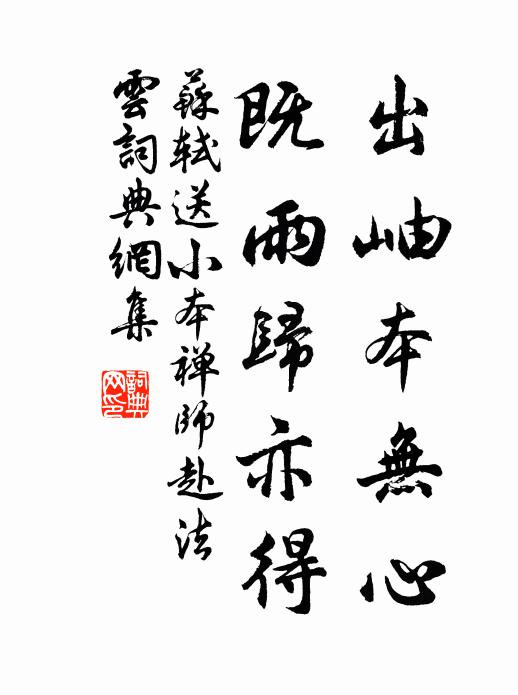 出岫本無心
既雨歸亦得
蘇軾送小本禅師赴法
雲詞典網集
詞典
网印